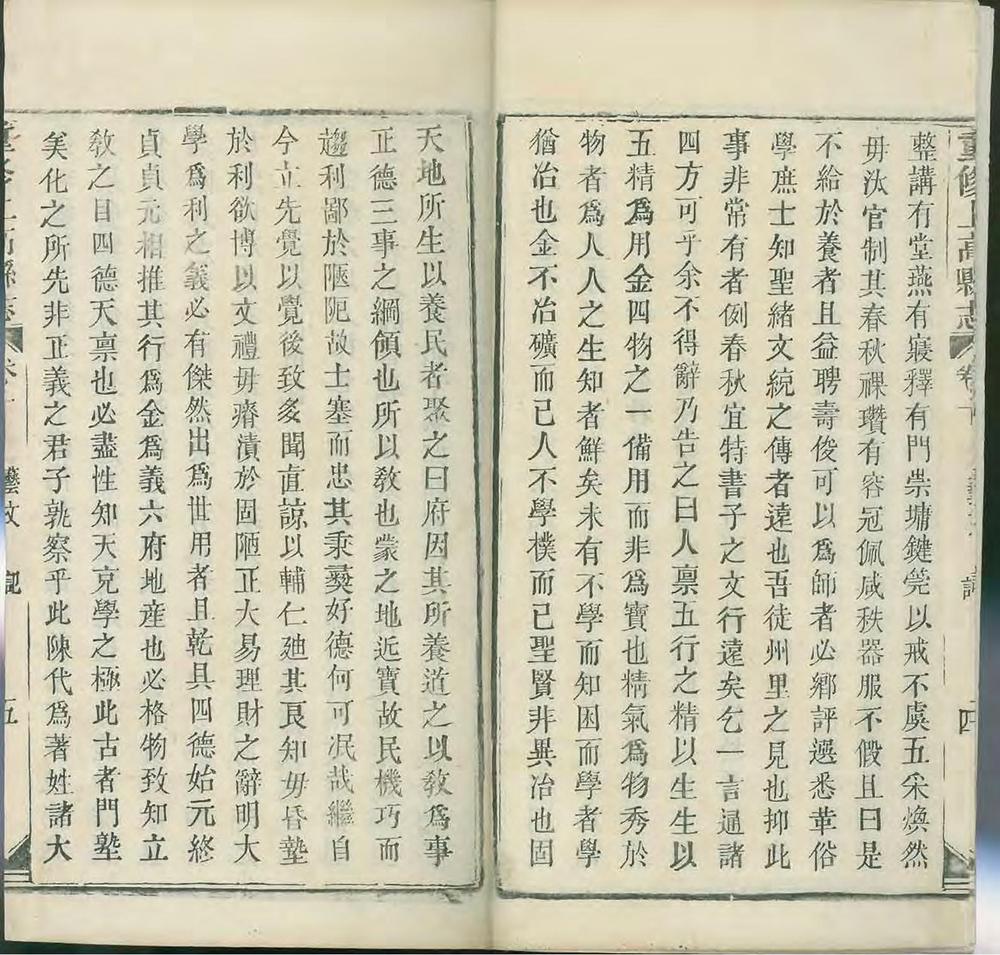 重修上高縣志
卷
記
四
整講有堂燕有寢釋有門崇墉鍵筦以戒不虞五采煥然
毋汰官制其春秋祼瓚有容冠佩咸秩器服不假且曰是
不給於養者且益聘壽俊可以爲師者必鄉評選悉革俗
學庶士知聖緒文統之傳者遠也吾徒州里之見也抑此
事非常有者例春秋宜特書子之文行遠矣乞一言逼諸
四方可乎余不得辭乃告之曰人禀五行之精以生生以
五精爲用金四物之一備用而非爲寶也精氣爲物秀於
物者爲人人之生知者鮮矣未有不學而知困而學者學
猶冶也金不冶礦而已人不學樸而已聖賢非異冶也固
天地所生以養民者聚之曰府因其所養道之以敎爲事
正德三事之綱領也所以敎也蒙之地近寶故民機巧而
趨利鄙於陋阨故士塞而忠其秉彝好德何可泯哉繼自
今立先覺以覺後致多聞直諒以輔仁廸其良知毋昏墊
於利欲博以文禮毋瘠漬於固陋正大易理財之辭明大
學爲利之義必有傑然出爲世用者且乾具四德始元終
貞貞元相推其行爲金爲義六府地産也必格物致知立
敎之目四德天禀也必盡性知天克學之極此古者門塾
美化之所先非正義之君子孰察乎此陳代爲著姓諸大
藝文
記
五